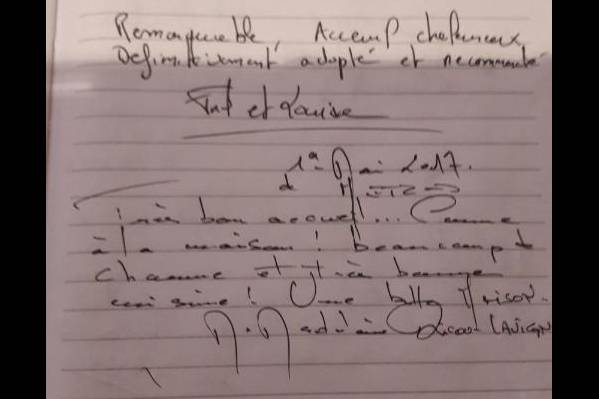 Remarquable, Accueil chaleureux,
Définitivement adopté et recommandé
et Louise
1er Mai 2017.
de METZ
Très bon accueil... Comme
à la maison ! beaucoup de
charme et très bonne
cuisine ! Une belle Maison.